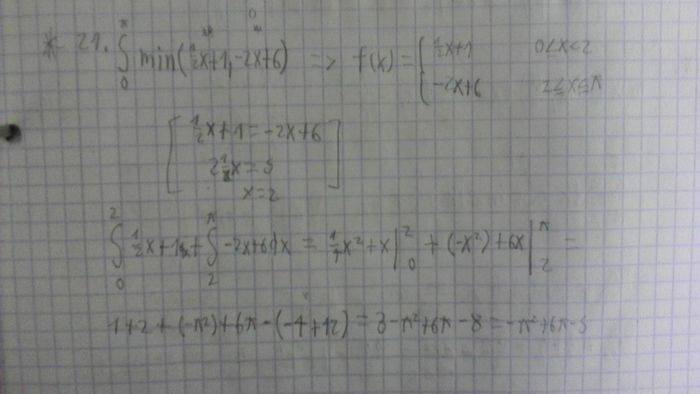 * 21. ∫₀^π min(½x+1, -2x+6) => f(x) = { ½x+1 0<x<2
-2x+6 2≤x≤π
[ ½x+1 = -2x+6
2½x = 5
x=2 ]
∫₀² ½x+1dx + ∫₂^π -2x+6dx = ¼x²+x |₀² + (-x²)+6x |₂^π =
1+2+(-π²)+6π-(-4+12) = 3-π²+6π-8 = -π²+6π-5